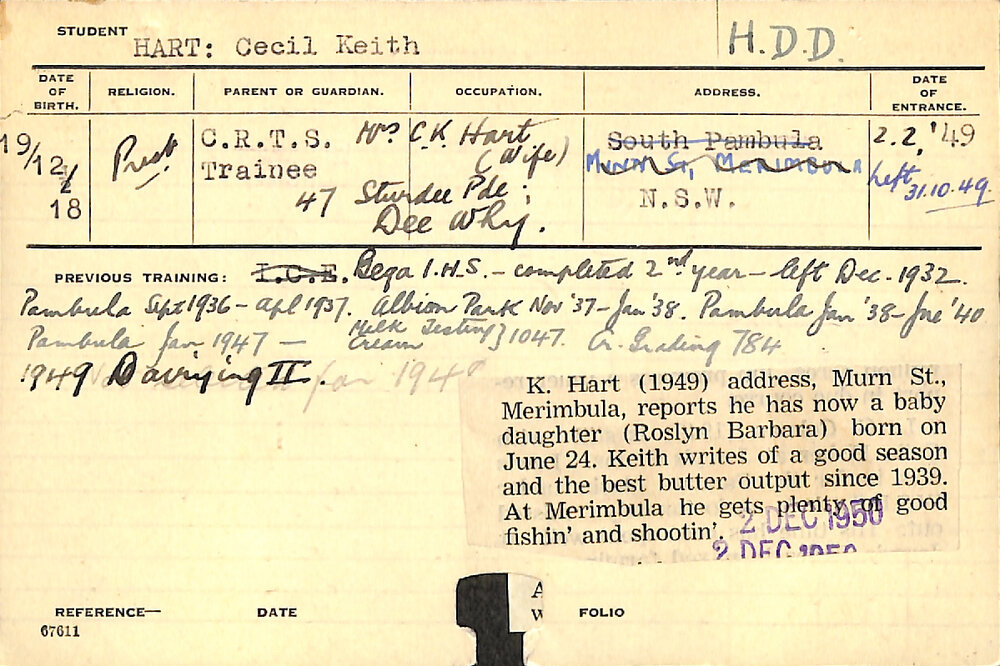 STUDENT HART: Cecil Keith H.D.D.
DATE OF BIRTH. RELIGION. PARENT OR GUARDIAN. OCCUPATION. ADDRESS. DATE OF ENTRANCE.
19/12/18 Presb. C.R.T.S. Mrs C.K. Hart South Pambula 2.2.'49
Trainee (Wife) Munn St, MERIMBULA Left 31.10.49.
47 Sturdee Pde; N.S.W.
Dee Why.
PREVIOUS TRAINING: I.C.E. Bega I.H.S. - completed 2nd year - left Dec. 1932.
Pambula Sept 1936 - Apl 1937. Albion Park Nov '37 - Jan '38. Pambula Jan '38 - Jne '40
Pambula Jan 1947 — Milk Testing } 1047. Cr. Grading 784
Cream
1949 Dairying II. for 194
K. Hart (1949) address, Murn St.,
Merimbula, reports he has now a baby
daughter (Roslyn Barbara) born on
June 24. Keith writes of a good season
and the best butter output since 1939.
At Merimbula he gets plenty of good
fishin' and shootin'.
2 DEC 1950
2 DEC 1950
REFERENCE— DATE FOLIO
67611
A
w